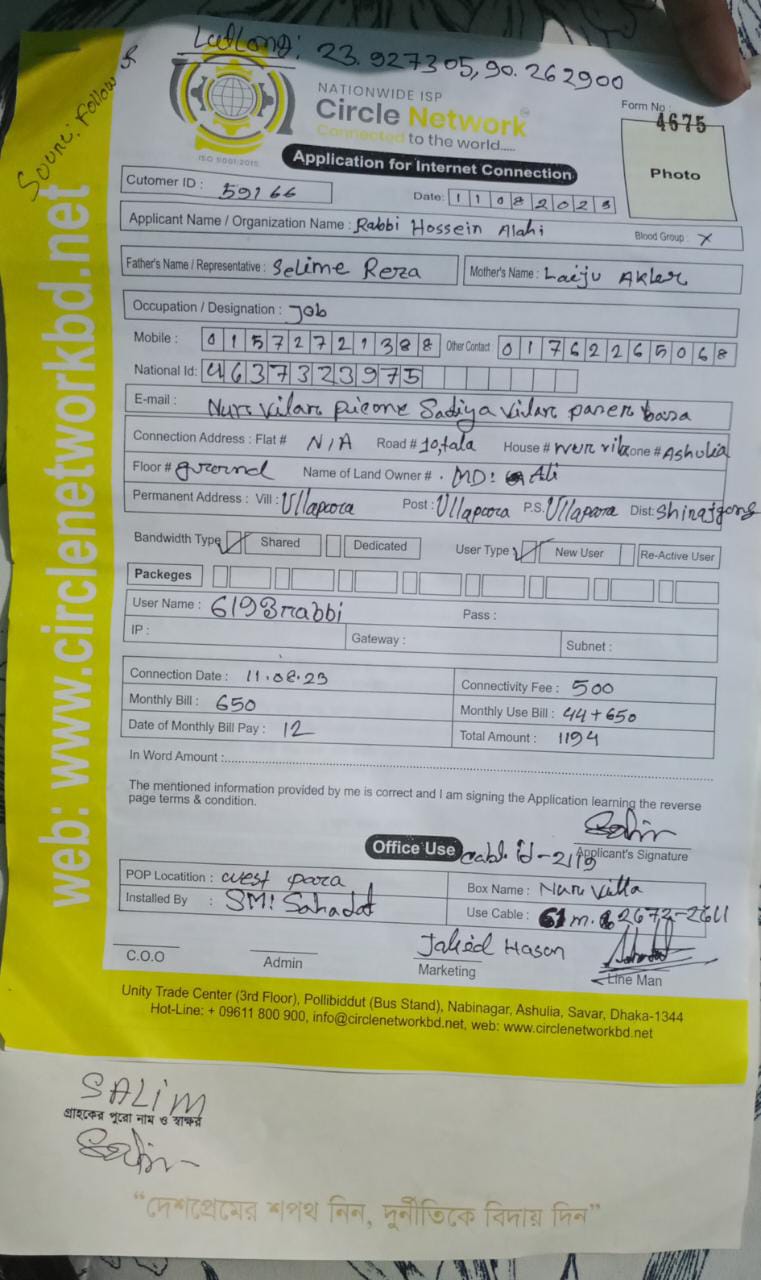 LatLong: 23.927305,90.262900
Source: Follow
NATIONWIDE ISP
Circle Network
Connected to the world.....
ISO 9001:2015
Form No :
4675
Photo
Application for Internet Connection
Cutomer ID : 59166
Date: 11082023
Applicant Name / Organization Name : Rabbi Hossein Alahi
Blood Group : X
Father's Name / Representative : Selime Reza
Mother's Name : Laiju Akter
Occupation / Designation : Job
Mobile : 01572721388 Other Contact : 01762265068
National Id: 4637323975
E-mail : Nur vilar picone Sadiya vilar paser basa
Connection Address : Flat # N/A Road # 10,tala House # nur vila Zone # Ashulia
Floor # ground Name of Land Owner # . MD: Ali
Permanent Address : Vill : Ullapara Post : Ullapara P.S. Ullapara Dist: Shirajgong
Bandwidth Type Shared Dedicated User Type New User Re-Active User
Packeges
User Name : 6193rabbi Pass :
IP : Gateway : Subnet :
Connection Date : 11.08.23 Connectivity Fee : 500
Monthly Bill : 650 Monthly Use Bill : 44+650
Date of Monthly Bill Pay : 12 Total Amount : 1194
In Word Amount :
The mentioned information provided by me is correct and I am signing the Application learning the reverse
page terms & condition.
Applicant's Signature
Office Use
POP Locatition : west para Box Name : Nur Villa
Installed By : SM: Sahadat Use Cable : 61m. 2672-2611
Jahid Hasan
C.O.O Admin Marketing Line Man
Unity Trade Center (3rd Floor), Pollibiddut (Bus Stand), Nabinagar, Ashulia, Savar, Dhaka-1344
Hot-Line: + 09611 800 900, info@circlenetworkbd.net, web: www.circlenetworkbd.net
web: www.circlenetworkbd.net
SALIM
গ্রাহকের পুরো নাম ও স্বাক্ষর
“দেশপ্রেমের শপথ নিন, দুর্নীতিকে বিদায় দিন”